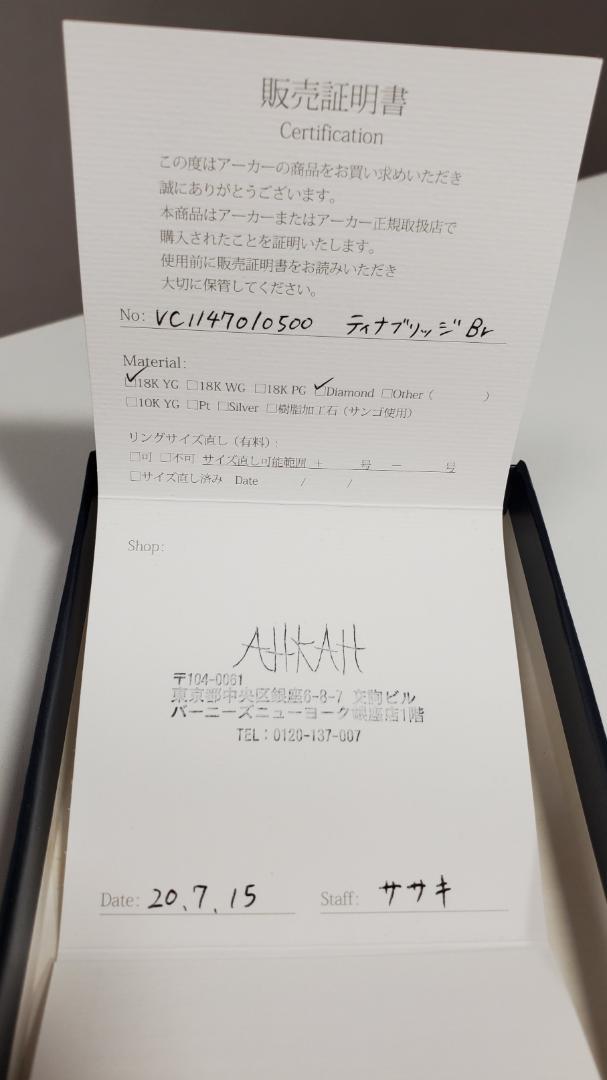 販売証明書
Certification
この度はアーカーの商品をお買い求めいただき
誠にありがとうございます。
本商品はアーカーまたはアーカー正規取扱店で
購入されたことを証明いたします。
使用前に販売証明書をお読みいただき
大切に保管してください。
No: VC1147010500 ティナブリッジBr
Material:
☑18K YG □18K WG □18K PG ☑Diamond □Other ( )
□10K YG □Pt □Silver □樹脂加工石（サンゴ使用）
リングサイズ直し（有料）:
□可 □不可 サイズ直し可能範囲 + 号 − 号
□サイズ直し済み Date / /
Shop:
AHKAH
〒104-0061
東京都中央区銀座6-8-7 交詢ビル
バーニーズニューヨーク銀座店1階
TEL：0120-137-007
Date: 20.7.15 Staff: ササキ